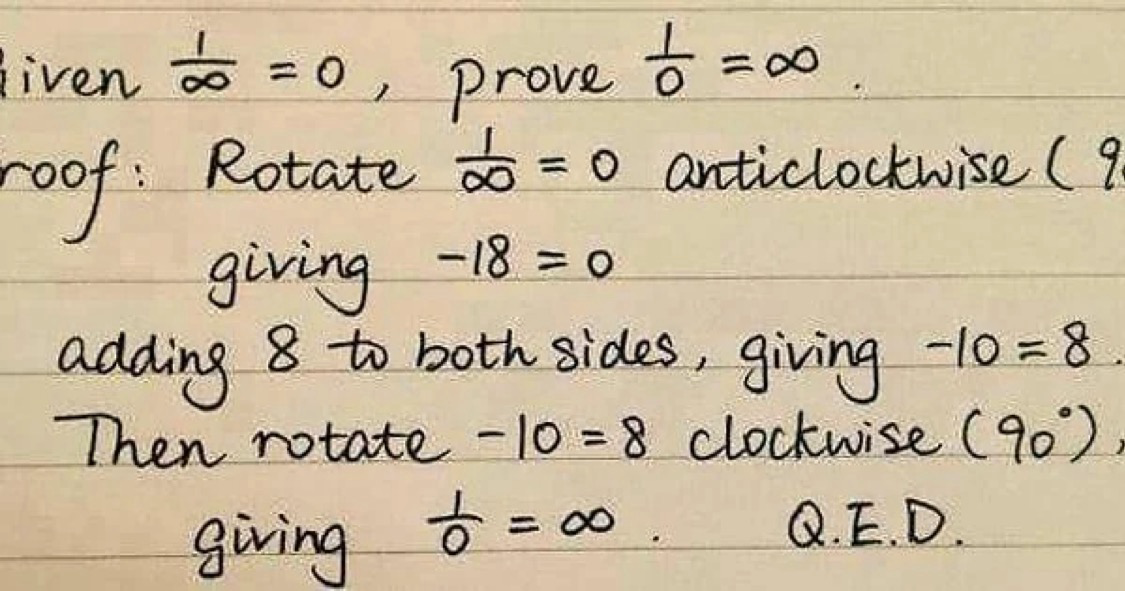 iven 1/∞ = 0, prove 1/0 = ∞.
roof: Rotate 1/∞ = 0 anticlockwise (9
giving -18 = 0
adding 8 to both sides, giving -10 = 8.
Then rotate -10 = 8 clockwise (90°),
giving 1/0 = ∞. Q.E.D.